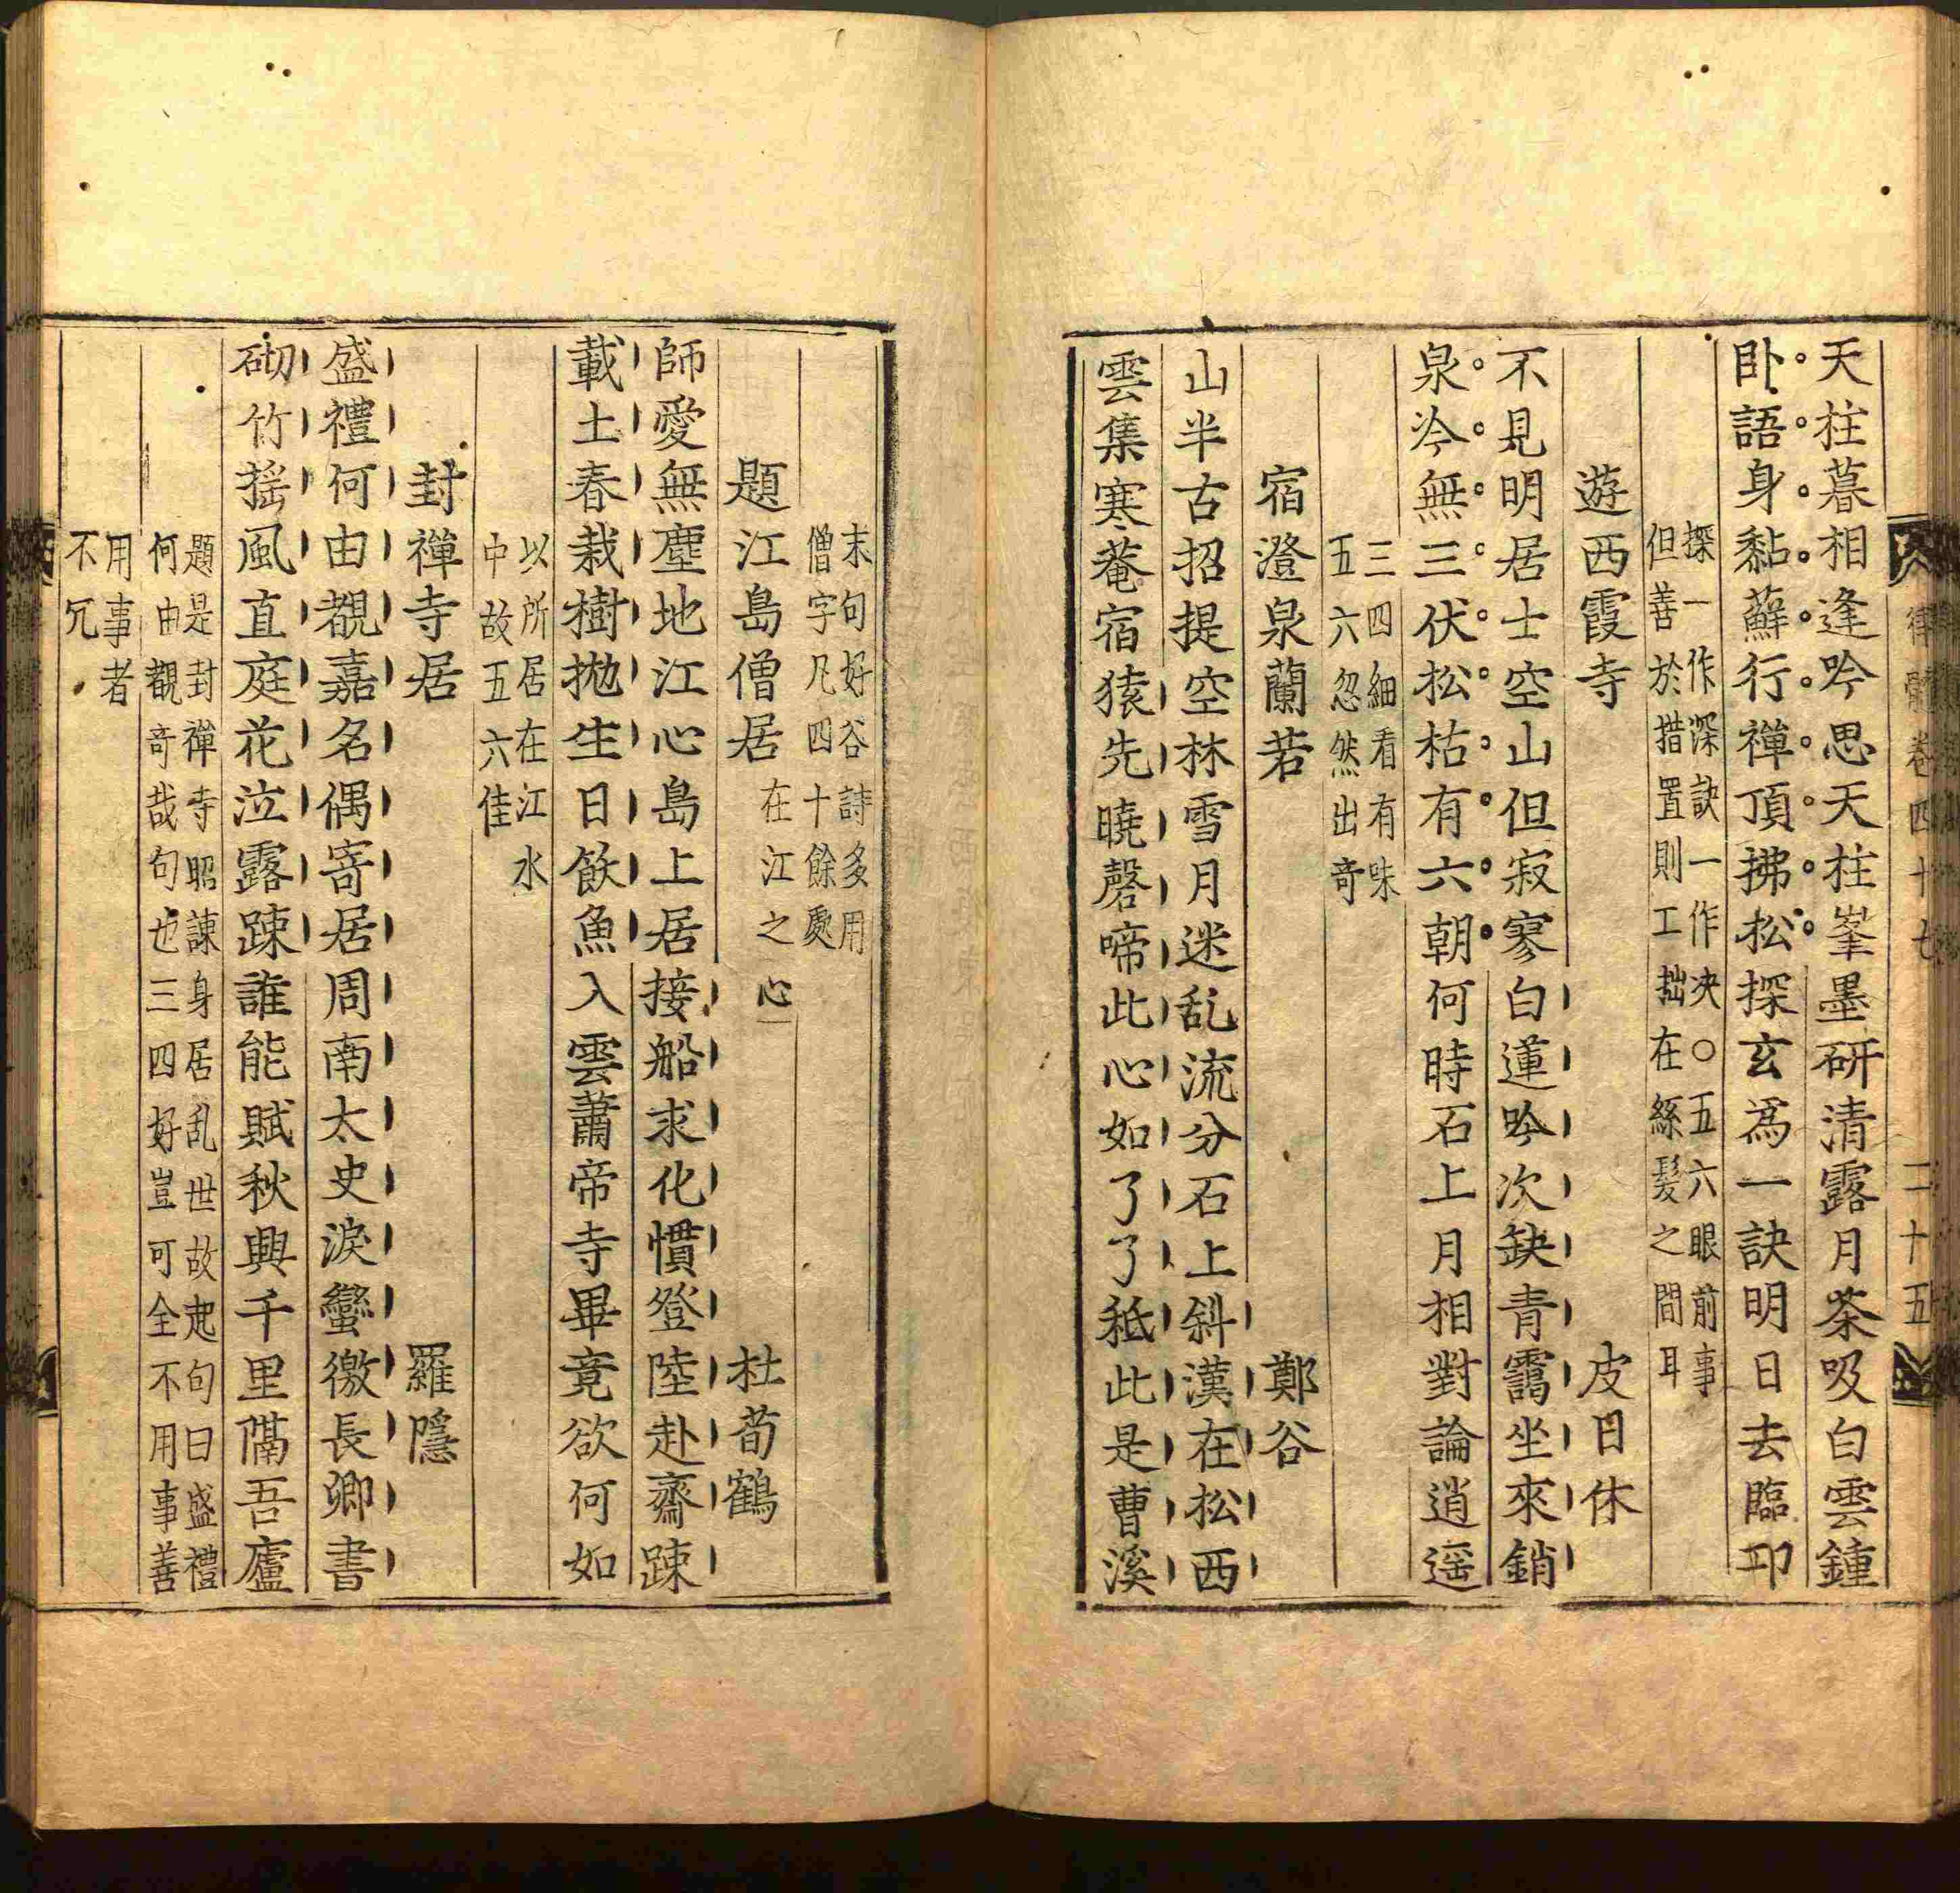 律髓卷四十七 二十五
天柱暮相逢吟思天柱峯墨研清露月茶吸白雲鍾
卧語身黏蘚行禪頂拂松探玄爲一訣明日去臨邛
探一作深訣一作決○五六眼前事
但善於措置則工拙在絲髮之間耳
遊西霞寺 皮日休
不見明居士空山但寂寥白蓮吟次缺青靄坐來銷
泉冷無三伏松枯有六朝何時石上月相對論逍遥
三四細看有味
五六忽然出奇
宿澄泉蘭若 鄭谷
山半古招提空林雪月迷乱流分石上斜漢在松西
雲集寒菴宿猿先曉磬啼此心如了了秪此是曹溪
末句好谷詩多用
僧字凡四十餘處
題江島僧居在江之心 杜荀鶴
師愛無塵地江心島上居接船求化慣登陸赴齋踈
載土春栽樹抛生日飯魚入雲蕭帝寺畢竟欲何如
以所居在江水
中故五六佳
封禪寺居 羅隱
盛禮何由覩嘉名偶寄居周南太史淚蠻徼長卿書
砌竹揺風直庭花泣露踈誰能賦秋興千里隔吾廬
題是封禪寺昭諫身居乱世故起句曰盛禮
何由覩奇哉句也三四好豈可全不用事善
用事者
不冗